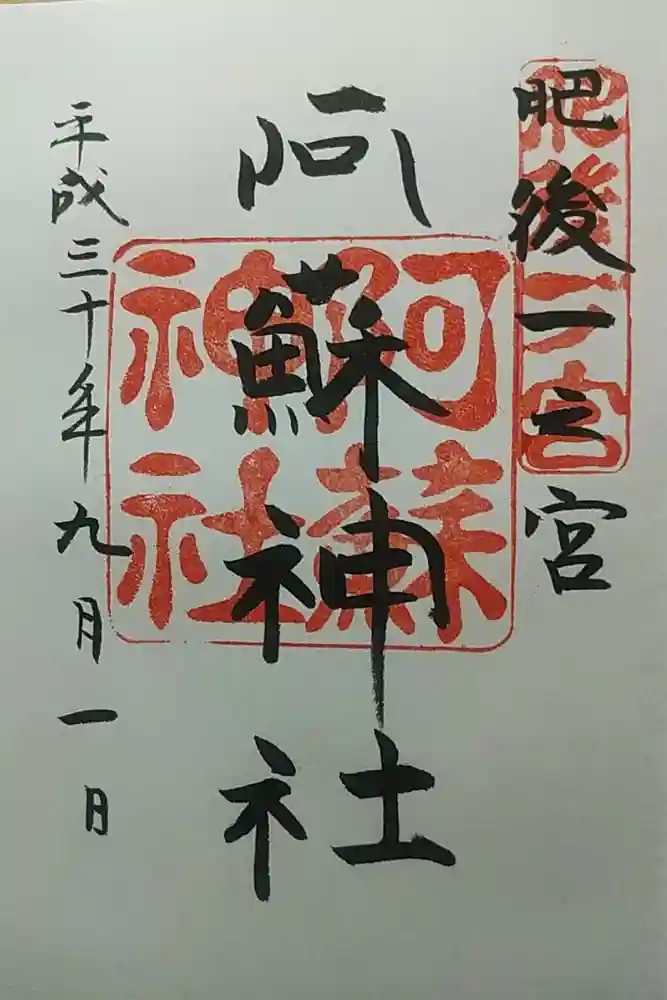 肥後一之宮
肥後一之宮
阿蘇神社
阿蘇
神社
平成三十年九月一日